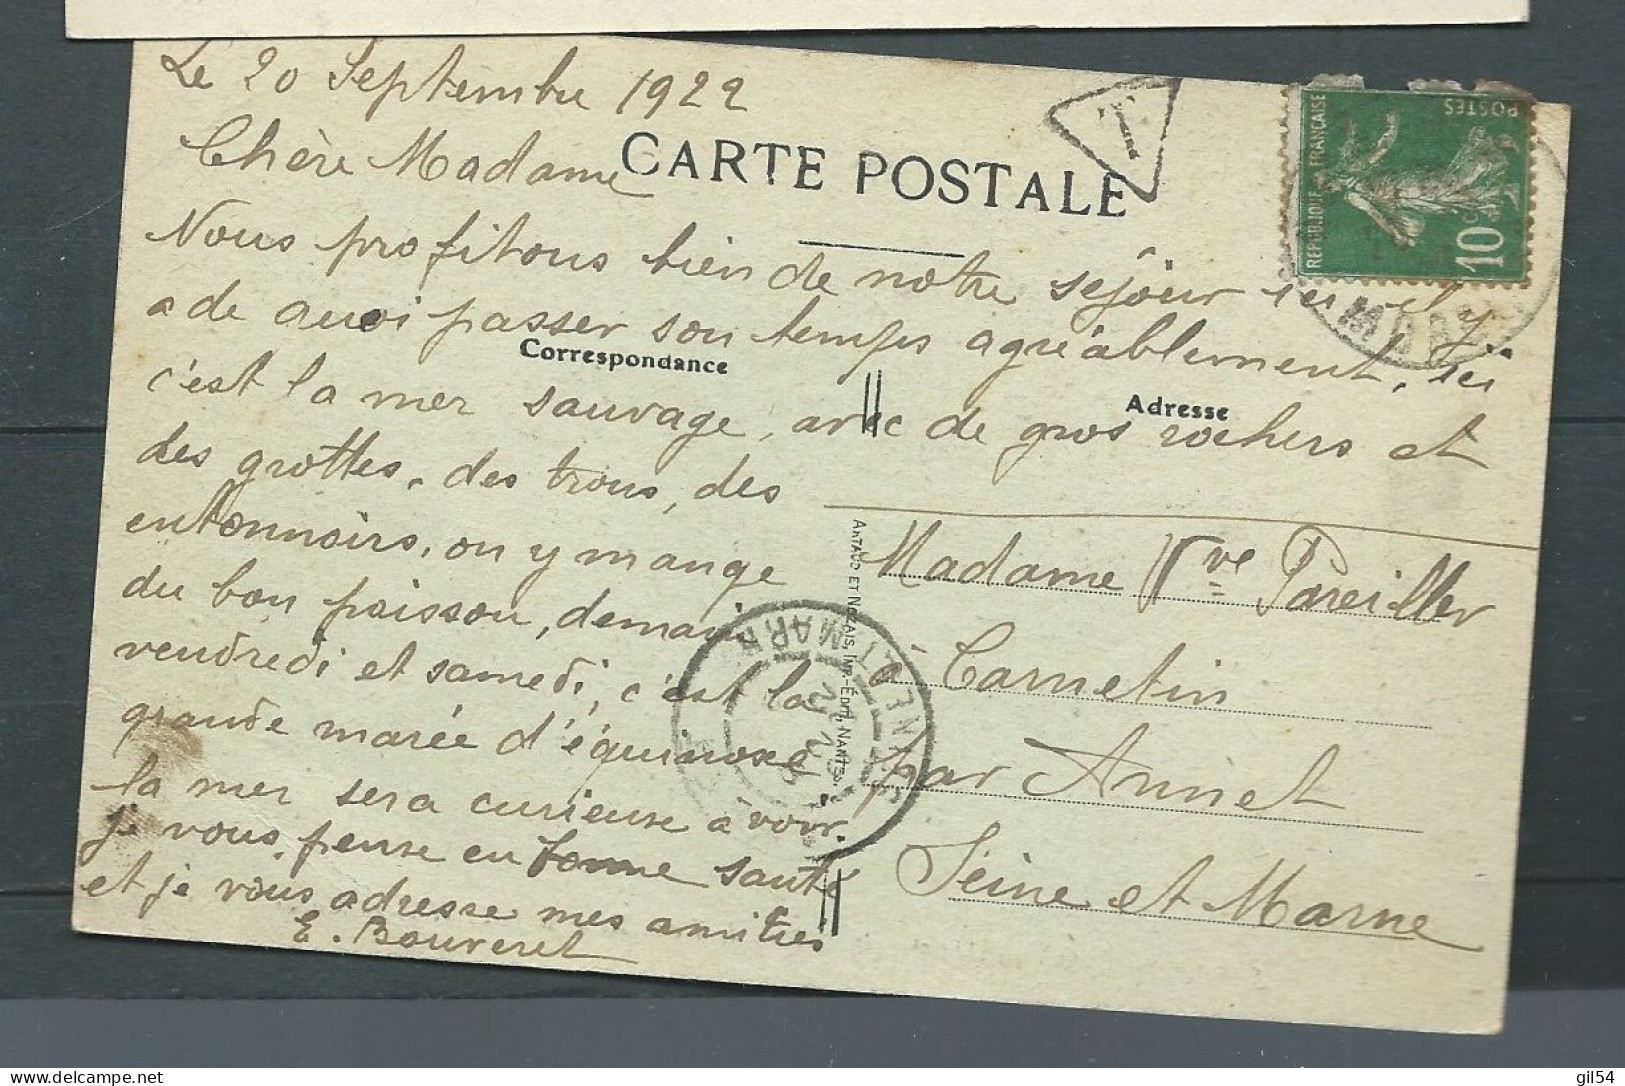 Le 20 Septembre 1922
Chère Madame
CARTE POSTALE
T
REPUBLIQUE FRANÇAISE
POSTES
10c
Nous profitons bien de notre séjour ici il y
a de quoi passer son temps agréablement, ici
Correspondance
c'est la mer sauvage, avec de gros rochers et
Adresse
des grottes, des trous, des
entonnoirs, on y mange
du bon poisson, demain
vendredi et samedi, c'est la
grande marée d'équinoxe
la mer sera curieuse à voir.
je vous pense en bonne santé
et je vous adresse mes amitiés
E. Bouveret
ARTAUD ET NOZAIS, IMP.-ÉDIT., NANTES.
Madame Vve Pareiller
à Carnetin
par Annet
Seine et Marne
gil54